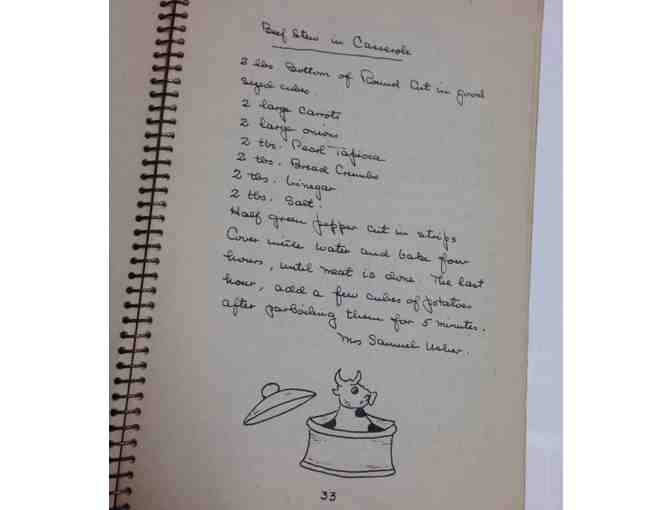 Beef Stew in Casserole
2 lbs Bottom of Round Cut in good
sized cubes.
2 large Carrots
2 large onions
2 tbs. Pearl Tapioca
2 tbs. Bread Crumbs
2 tbs. Vinegar
2 tbs. Salt.
Half green pepper cut in strips
Cover with water and bake four
hours, until meat is done. The last
hour, add a few cubes of potatoes
after parboiling them for 5 minutes.
Mrs Samuel Usher.
33